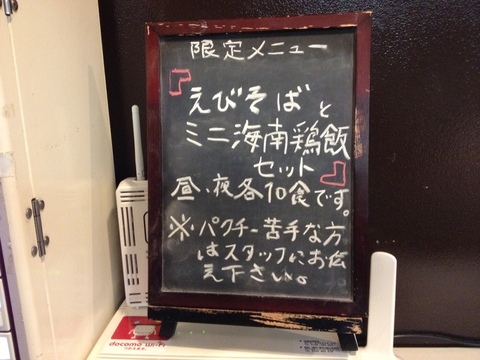 限定メニュー
『えびそばと
ミニ海南鶏飯
セット』
昼、夜各10食です。
※パクチー苦手な方
はスタッフにお伝
え下さい。
docomo Wi-Fi